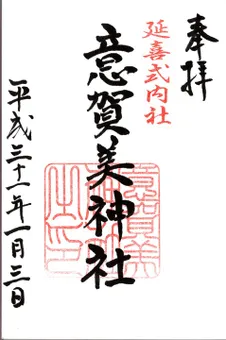 奉拝
延喜式内社
意賀美神社
平成三十一年一月三日